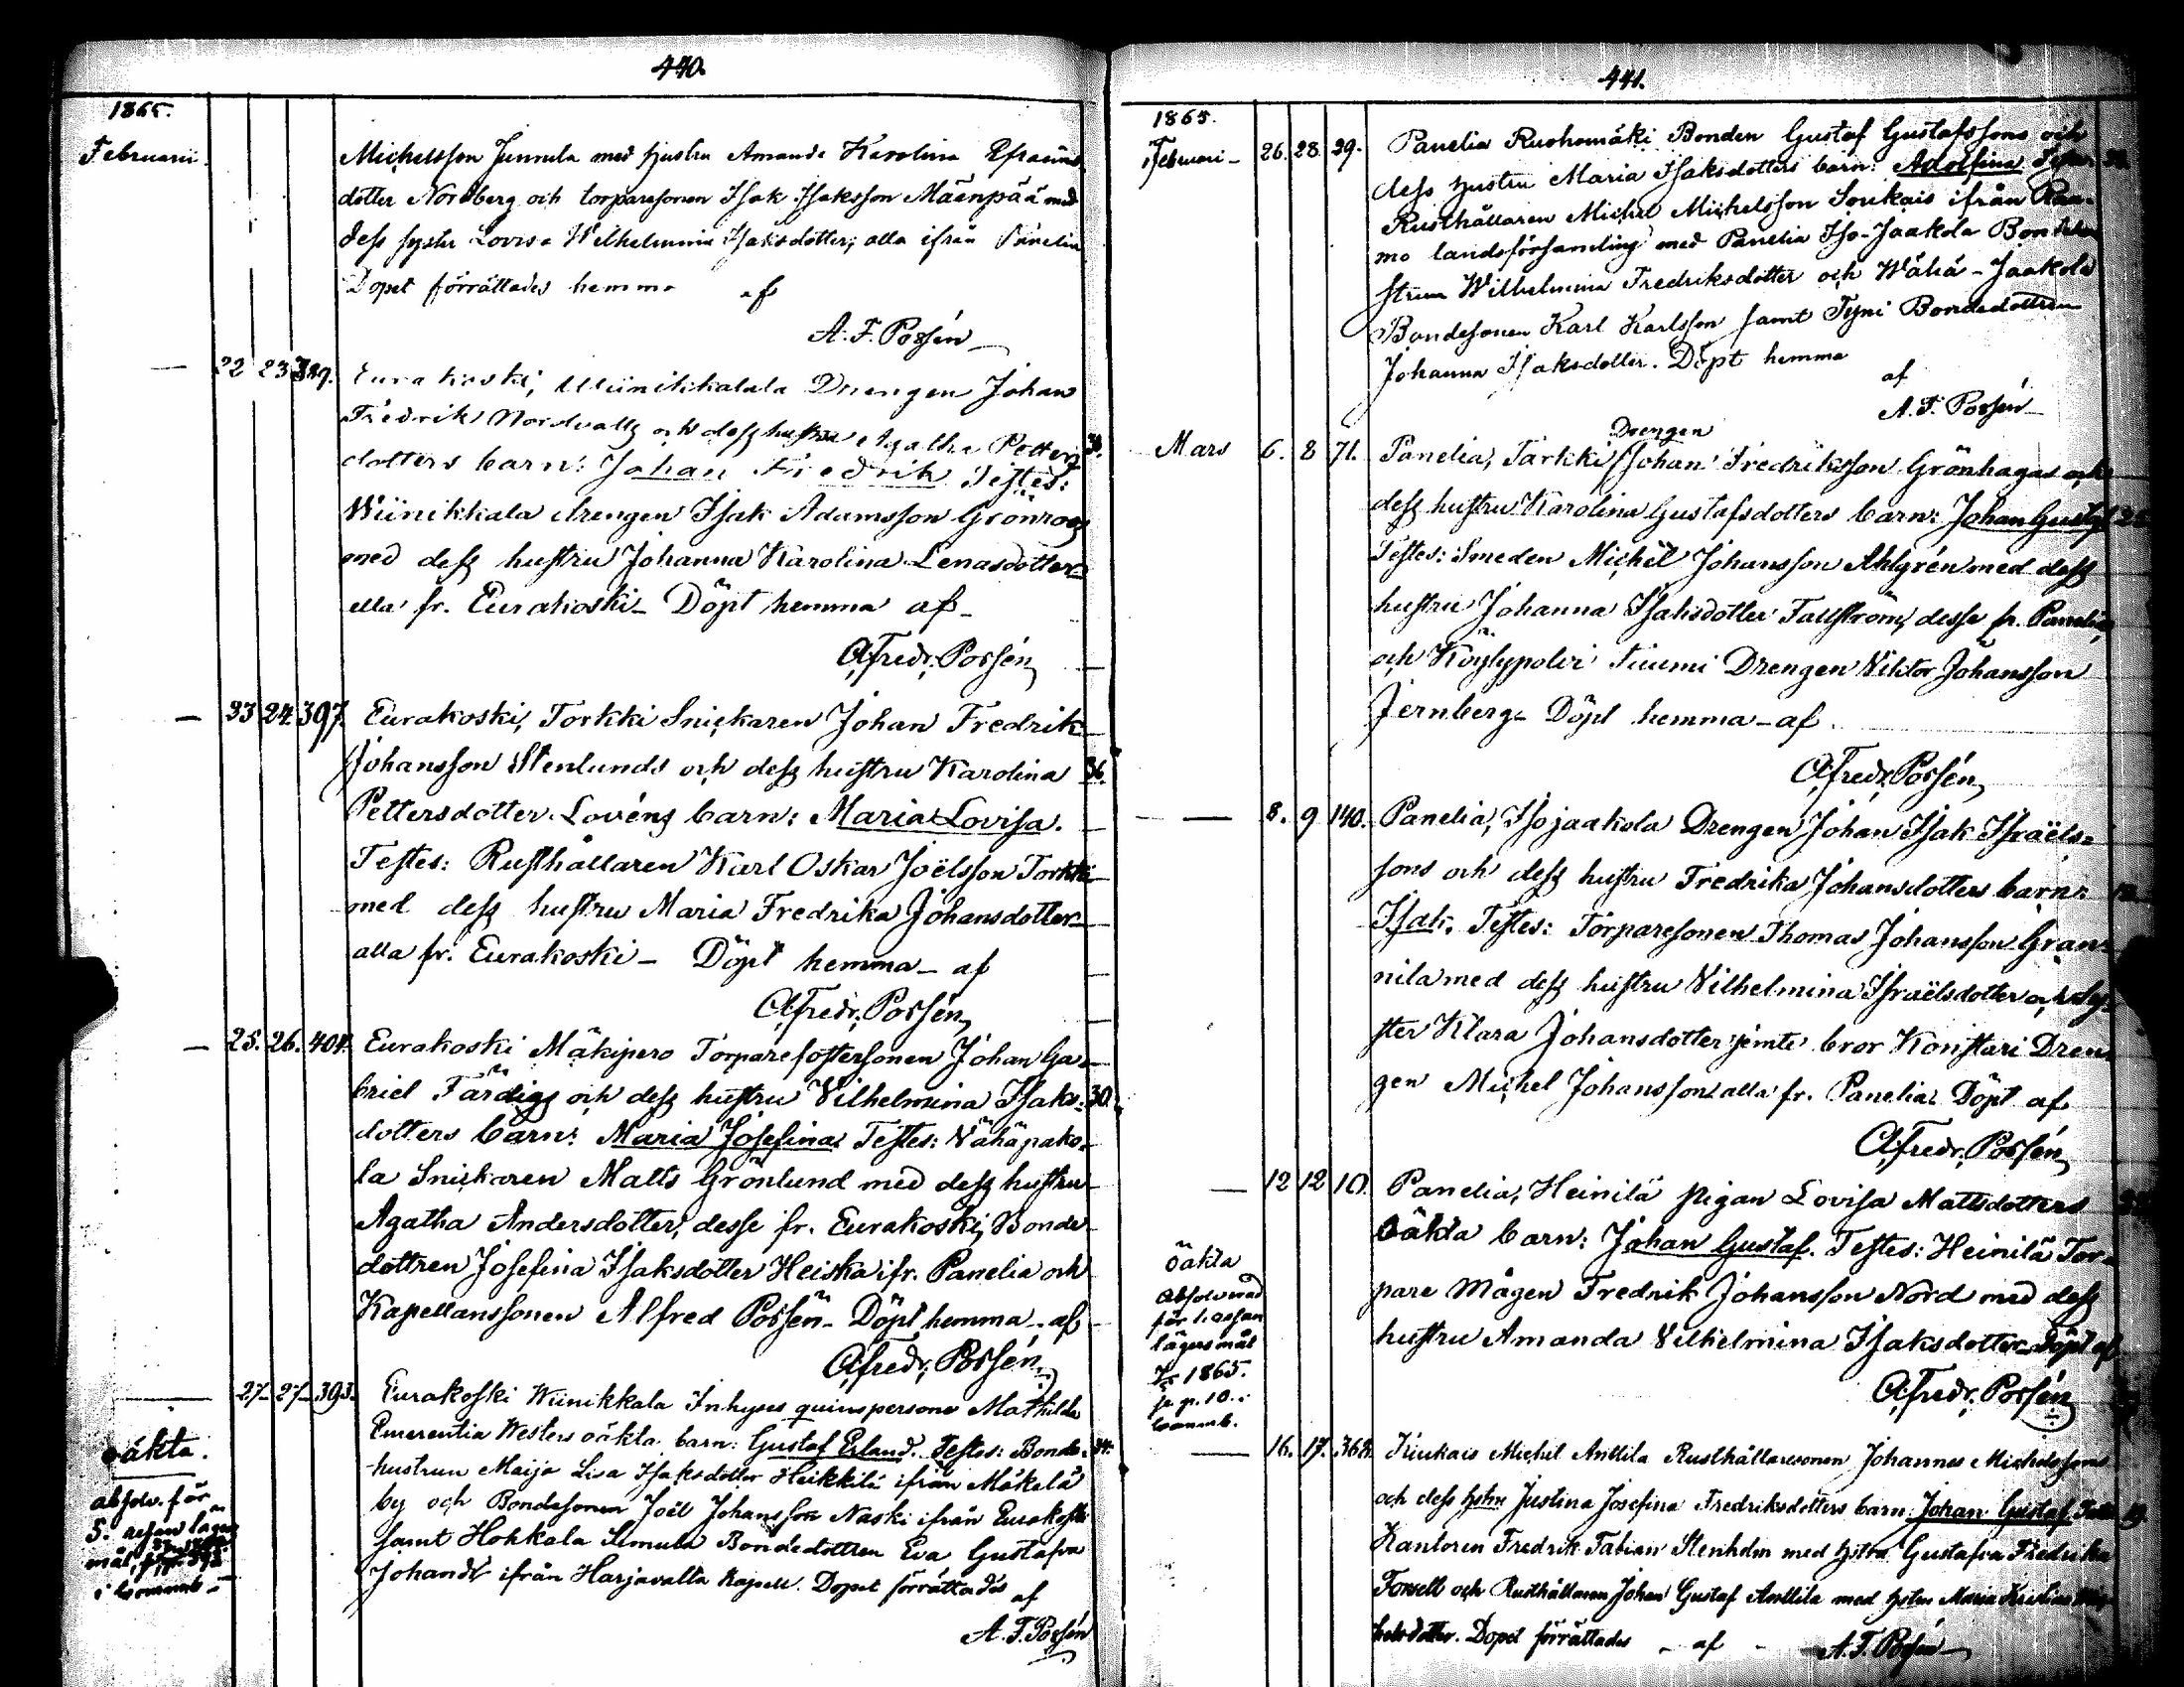 440.
1865.
Februarii
Michelsson Junnula med hustru Amanda Karolina Efraims
dotter Nordberg och torparesonen Isak Isaksson Mäenpää med
dess syster Lovisa Wilhelmina Isaksdotter; alla ifrån Panelia
Dopet förrättades hemma af
A. F. Possén
— 22 23 389. Eurakoski, Wiinikkalala Drengen Johan
Fredrik Nordvalls och dess hustru Agatha Petters
dotters barn: Johan Fredrik Testes:
Wiinikkala drengen Isak Adamsson Grönroos
med dess hustru Johanna Karolina Lenasdotter
alla fr. Eurakoski – Döpt hemma af –
A. Fredr. Possén
— 23 24. 397. Eurakoski, Torkki Snickaren Johan Fredrik
Johansson Stenlunds och dess hustru Karolina 36.
Pettersdotter Lovéns barn: Maria Lovisa.
Testes: Rusthållaren Karl Oskar Joëlsson Torkki
med dess hustru Maria Fredrika Johansdotter
alla fr. Eurakoski – Döpt hemma – af
A. Fredr. Possén
— 25. 26. 404. Eurakoski Mäkipero Torparefostersonen Johan Ga-
briel Färdigs och dess hustru Vilhelmina Isaks- 30.
dotters barn: Maria Josefina. Testes: Vähäpako-
la Snickaren Matts Grönlund med dess hustru
Agatha Andersdotter, desse fr. Eurakoski, Bonde
dottren Josefina Isaksdotter Heiska ifr. Panelia och
Kapellanssonen Alfred Possén – Döpt hemma – af
A. Fredr. Possén
— 27 27 393. Eurakoski Wiinikkala Inhyses quinspersone Mathilda
Emerentia Westers oäkta barn: Gustaf Erland. Testes: Bonde- 34.
hustrun Maija Lisa Isaksdotter Heikkilä ifrån Mäkelä
by och Bondesonen Joël Johansson Naski ifrån Eurakoski
samt Hohkala Simula Bondedottren Eva Gustafva
Johansdr ifrån Harjavalta Kapell. Dopet förrättades
af
A. F. Possén
oäkta.
absolv. för
5. resan lägers
mål,
i Comm.b.
441.
1865.
Februari – 26. 28. 29. Panelia Ruohomäki Bonden Gustaf Gustafssons och
dess hustru Maria Isaksdotters barn: Adolfina
Rusthållaren Michel Michelsson Soukais ifrån Rau-
mo landsförsamling med Panelia Iso-Jaakola Bondehu
strun Wilhelmina Fredriksdotter och Wähä-Jaakola
Bondesonen Karl Karlsson samt Tyni Bondedottren
Johanna Isaksdotter. Döpt hemma
af
A. F. Possén
Drengen
Mars 6. 8 71. Panelia, Tarkki Johan Fredriksson Grönhagas och
dess hustru Karolina Gustafsdotters barn: Johan Gustaf
Testes: Smeden Michel Johansson Ahlgrén med dess
hustru Johanna Isaksdotter Tallström, desse fr. Panelia,
och Köylypolvi Tuumi Drengen Viktor Johansson
Jernberg – Döpt hemma – af
A. Fredr. Possén
— 8. 9 140. Panelia, Isojaakola Drengen Johan Isak Israëls-
sons och dess hustru Fredrika Johansdotters barn:
Isak. Testes: Torparesonen Thomas Johansson Gran-
nila med dess hustru Vilhelmina Israëlsdotter och sy-
ster Klara Johansdotter jemte bror Konstari Dren-
gen Michel Johansson alla fr. Panelia. Döpt af
A. Fredr. Possén
— 12 12 10. Panelia, Heinilä pigan Lovisa Mattsdotters
oäkta barn: Johan Gustaf. Testes: Heinilä Tor-
pare Mågen Fredrik Johansson Nord med dess
hustru Amanda Vilhelmina Isaksdotter – Döpt af
A. Fredr. Possén
oäkta
absolverad
för 1. resan
lägersmål
1865.
se p. 10. i
Comm.b.
— 16. 17. 368. Kiukais Michil Anttila Rusthållaresonen Johannes Michelssons
och dess hstru Justina Josefina Fredriksdotters barn: Johan Gustaf 19.
Kantoren Fredrik Fabian Stenholm med hstru Gustafva Fredrika
Forsell och Rusthållaren Johan Gustaf Anttila med hstru Maria Kristina Mic-
helsdotter. Dopet förrättades – af – A. F. Possén